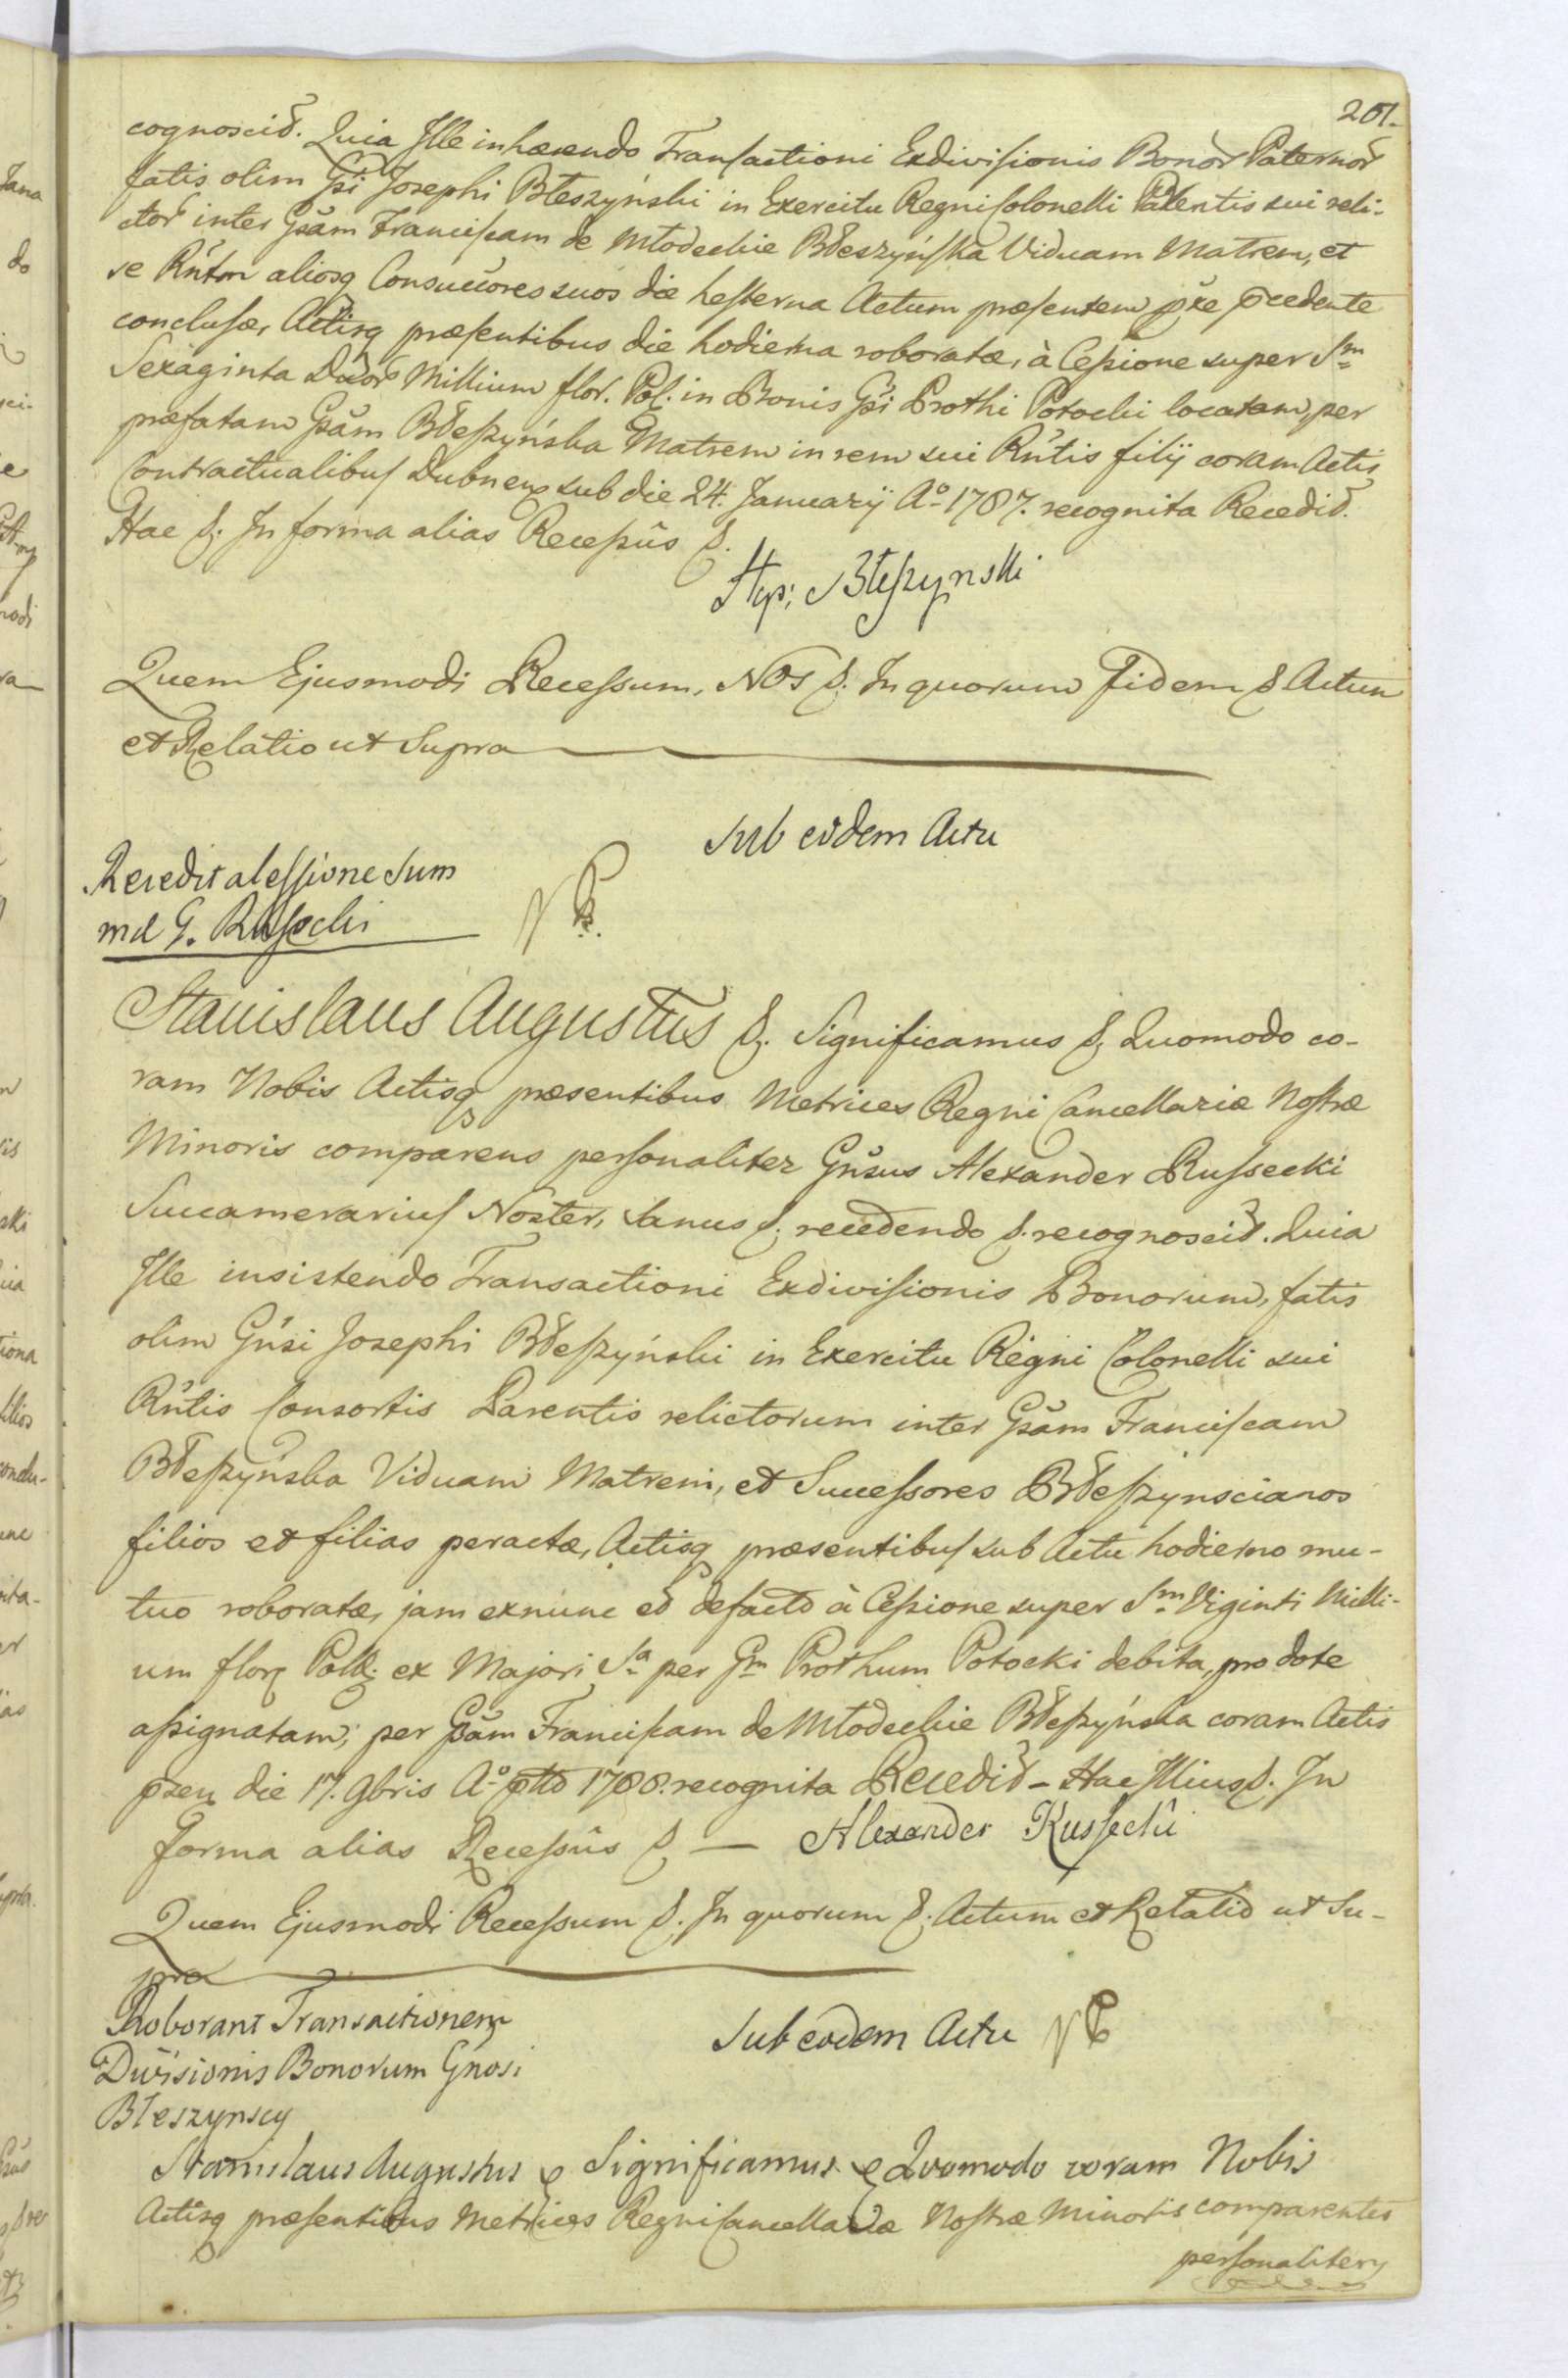 201.
cognoscit. Quia Ille inhærendo Transactioni Exdivisionis Bonor Paternor
fatis olim Gsi Josephi Błeszyński in Exercitu Regni Colonelli Parentis sui reli-
ctor inter Gsam Franciscam de Młodeckie Błeszyńska Viduam Matrem, et
se Rntm aliosq Consuccores suos die hesterna Actum præsentem præcedente
conclusæ, Actisq præsentibus die hodierna roboratæ, à Cessione super Sm
Sexaginta Duor Millium flor. Pol. in Bonis Gsi Prothi Potocki locatam, per
præfatam Gsam Błeszyńska Matrem in rem sui Rntis filij coram Actis
Contractualibus Dubnen sub die 24. Januarij Ao 1787. recognita Recedit.
Hac &. In forma alias Recessûs &.
Hyp: Błeszynski
Quem Ejusmodi Recessum, Nos &. In quorum Fidem & Actum
et Relatio ut Supra
Sub eodem Actu
Recedit a Cessione Sum
mæ G. Russecki
Stanislaus Augustus &. Significamus &. Quomodo co-
ram Nobis Actisq præsentibus Metrices Regni Cancellariæ Nostræ
Minoris comparens personaliter Gnsus Alexander Russecki
Succamerarius Noster, Sanus &. recedendo &. recognoscit. Quia
Ille insistendo Transactioni Exdivisionis Bonorum, fatis
olim Gnsi Josephi Błeszyński in Exercitu Regni Colonelli sui
Rntis Consortis Parentis relictorum inter Gsam Franciscam
Błeszyńska Viduam Matrem, et Successores Błeszynscianos
filios et filias peractæ, Actisq præsentibus sub Actu hodierno mu-
tuo roboratæ, jam exnunc et defacto à Cessione super Sm Viginti Milli-
um flor Poll. ex Majori Sa per Gm Prothum Potocki debita, pro dote
assignatam, per Gsam Franciscam de Młodeckie Błeszyńska coram Actis
psen die 17. 9bris Ao 1788. recognita Recedit - Hac Illius &. In
forma alias Recessûs & — Alexander Russecki
Quem Ejusmodi Recessum &. In quorum &. Actum et Relatio ut Su-
pra
Roborant Transactionem
Divisionis Bonorum Gnosi
Błeszynscy
Sub eodem Actu
Stanislaus Augustus & Significamus & Quomodo coram Nobis
Actisq præsentibus Metrices Regni Cancellariæ Nostræ Minoris comparentes
personaliter